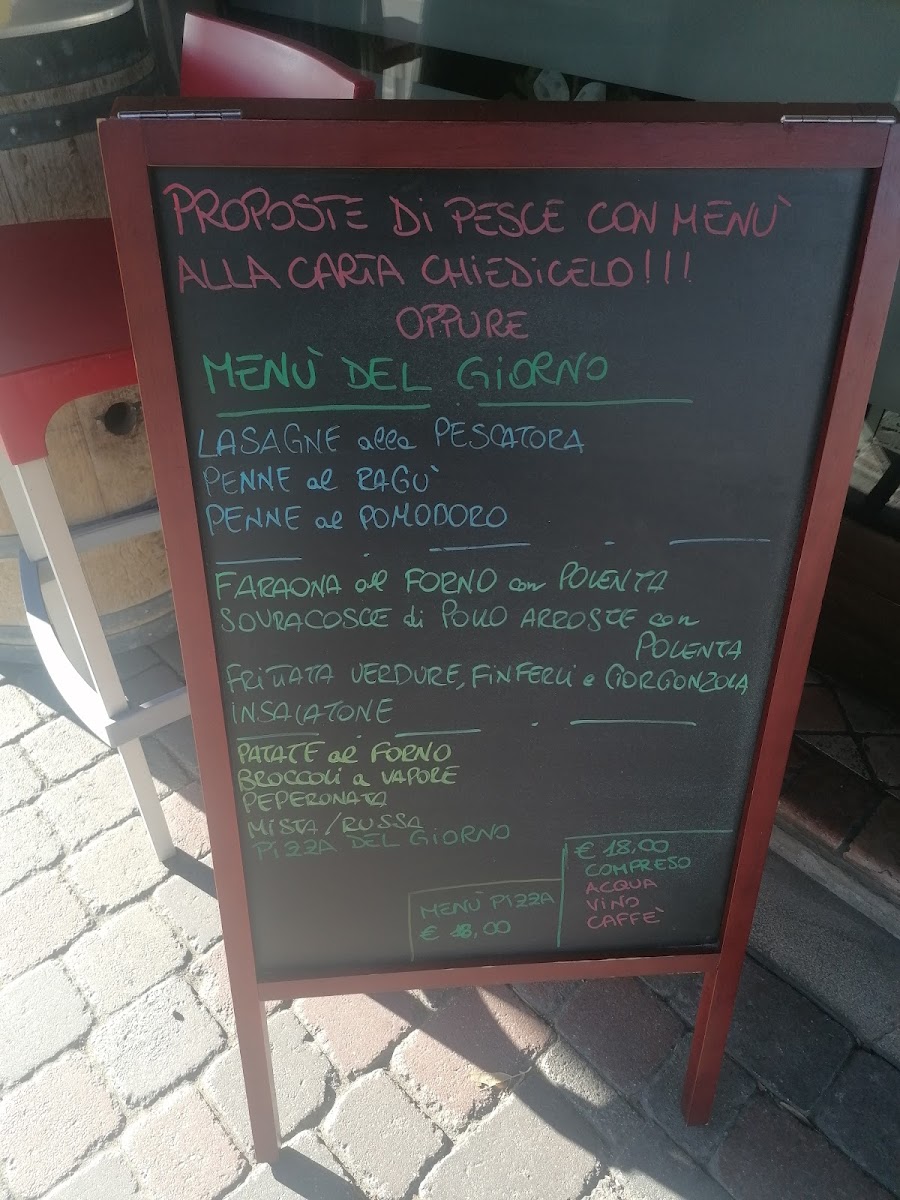 PROPOSTE Di PESCE CON MENÙ
ALLA CARTA CHIEDICELO!!!
OPPURE
MENÙ DEL GIORNO
LASAGNE alla PESCATORA
PENNE al RAGÙ
PENNE al POMODORO
FARAONA al FORNO con POLENTA
SOVRACOSCE di POLLO ARROSTE con
POLENTA
FRITTATA VERDURE, FINFERLI e GORGONZOLA
INSALATONE
PATATE al FORNO
BROCCOLI a VAPORE
PEPERONATA
MISTA/RUSSA
PIZZA DEL GIORNO
€ 18,00
COMPRESO
ACQUA
VINO
CAFFÈ
MENÙ PIZZA
€